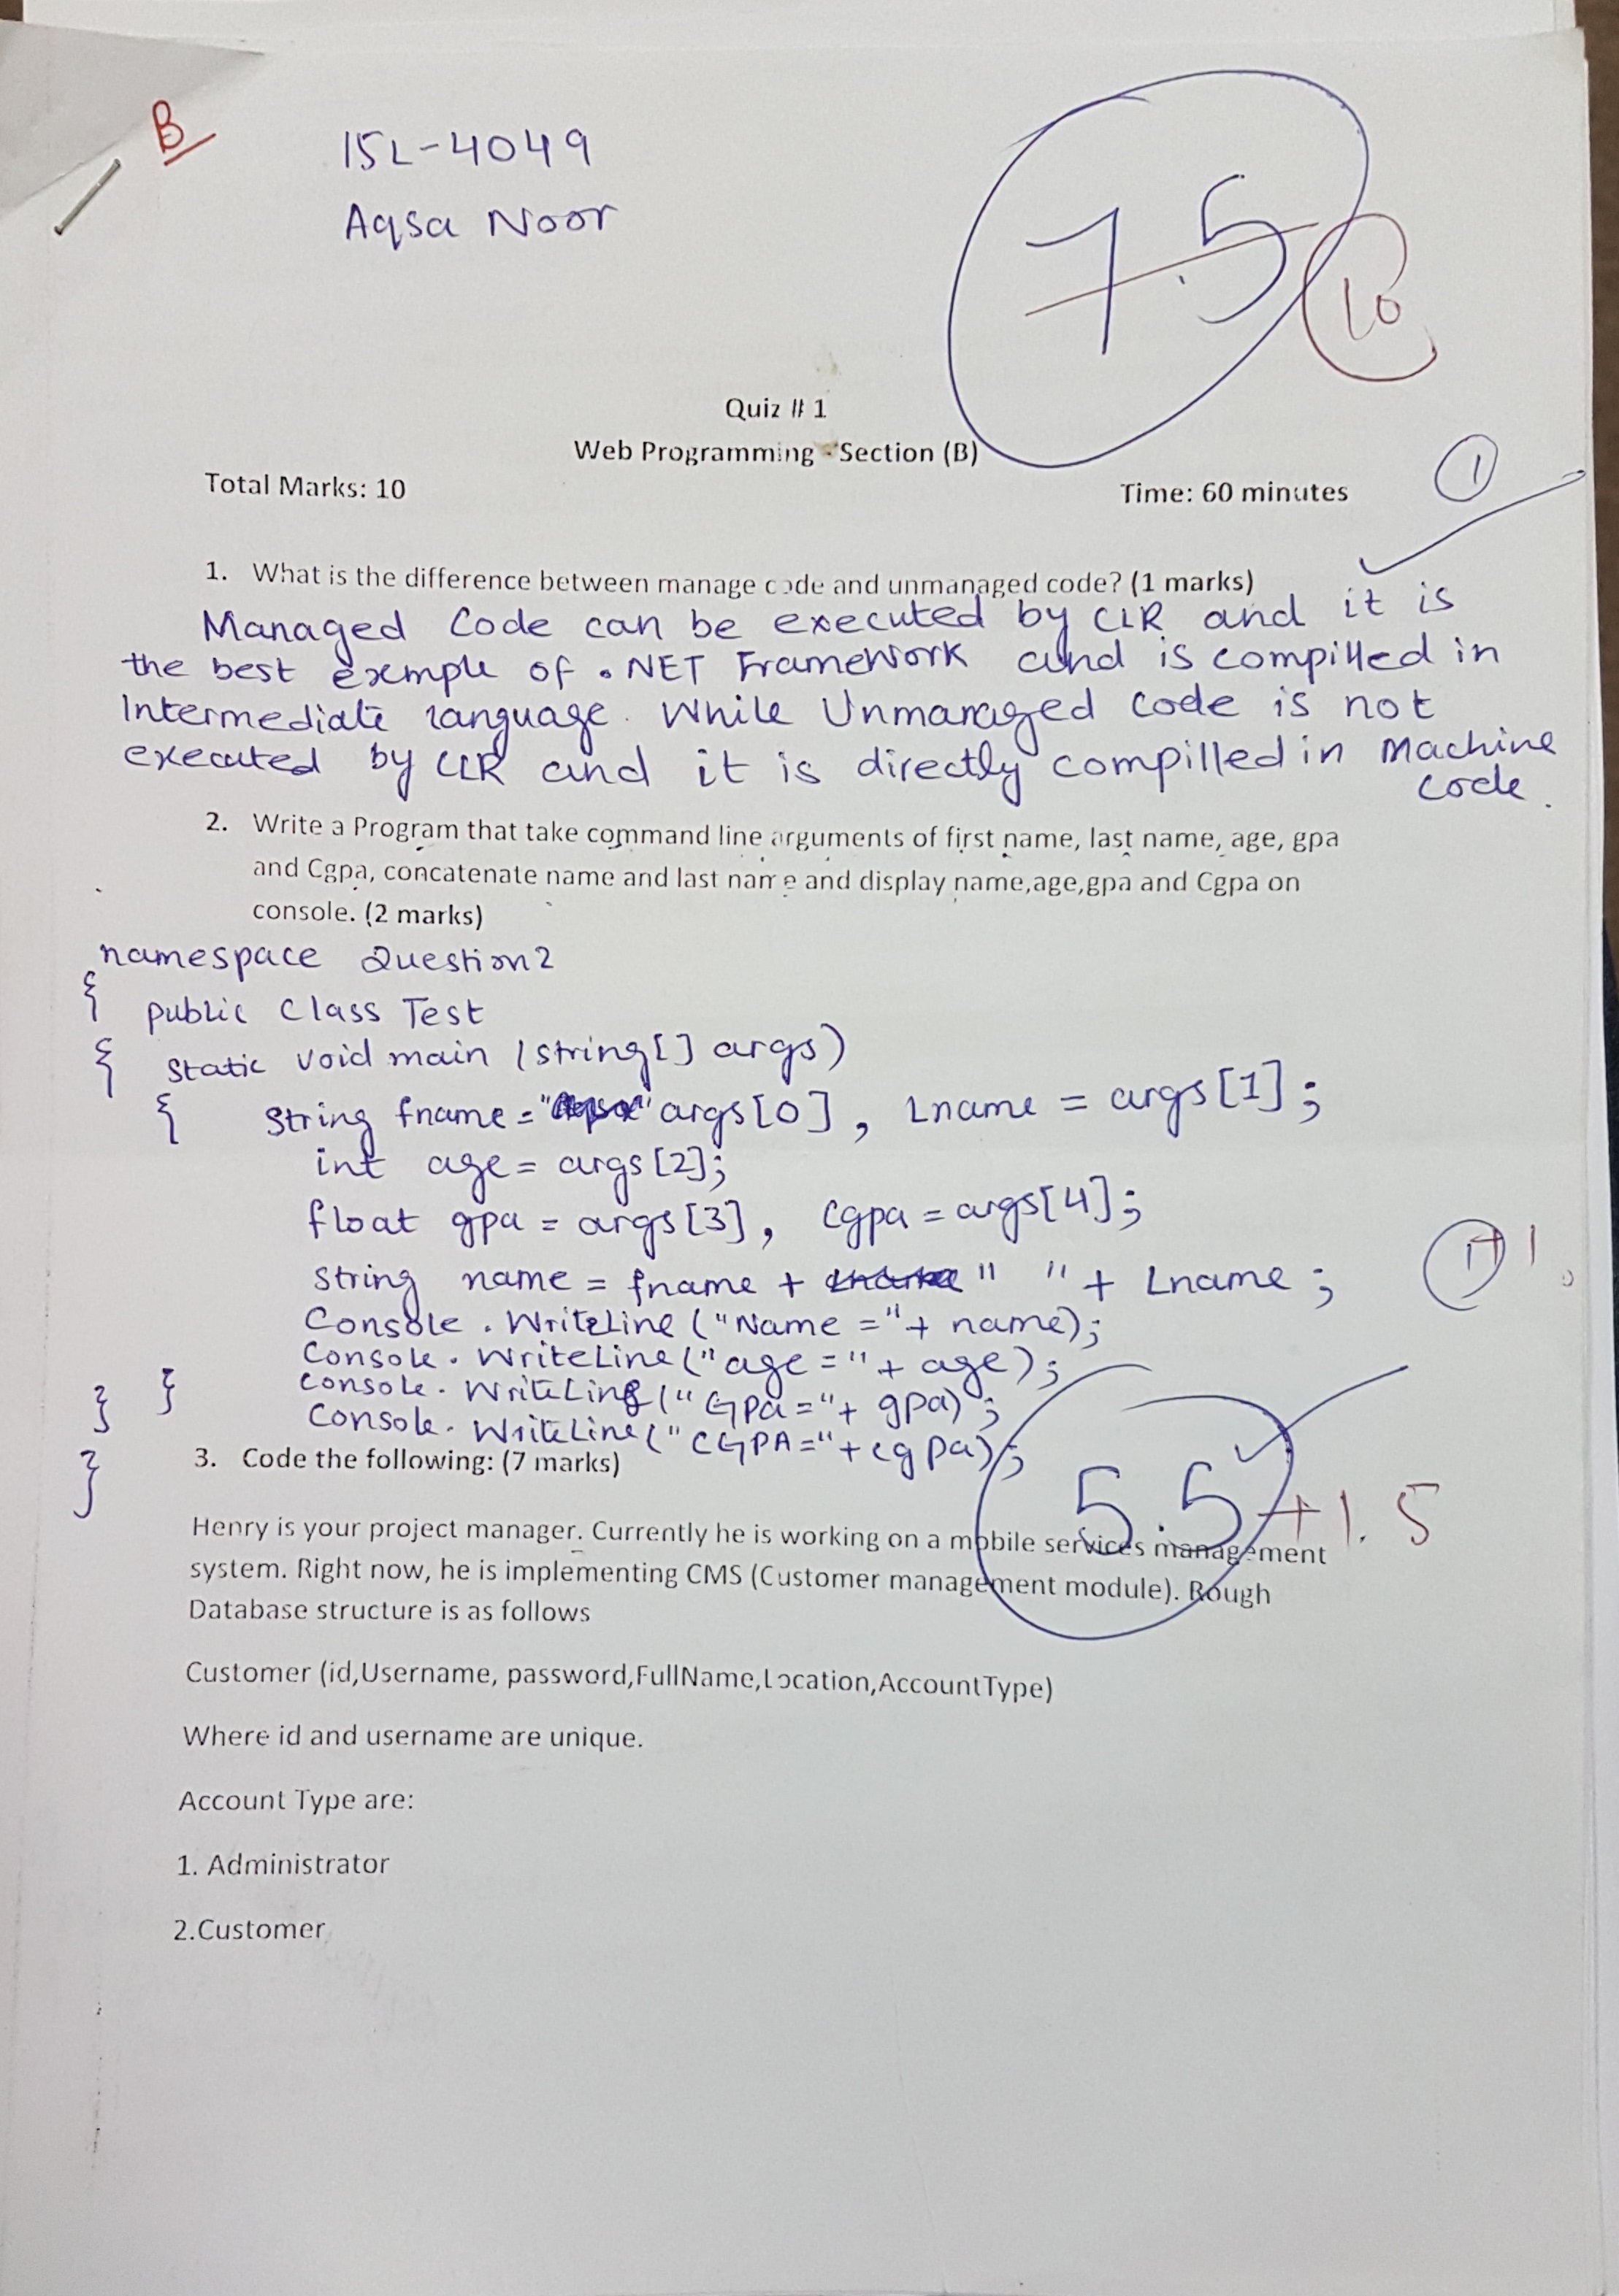 B
15L-4049
Aqsa Noor
7.5
10
Quiz # 1
Web Programming - Section (B)
Total Marks: 10
Time: 60 minutes
1
1. What is the difference between manage code and unmanaged code? (1 marks)
Managed Code can be executed by CLR and it is
the best exmple of .NET FrameWork and is compilled in
Intermediate language. While Unmanaged code is not
executed by CLR and it is directly compilled in Machine
code.
2. Write a Program that take command line arguments of first name, last name, age, gpa
and Cgpa, concatenate name and last name and display name,age,gpa and Cgpa on
console. (2 marks)
namespace Question2
{ public Class Test
{ static void main (string[] args)
{ string fname = args[0], Lname = args[1];
int age = args[2];
float gpa = args[3], cgpa = args[4];
string name = fname + " " + Lname ;
1+1
Console.WriteLine("Name ="+ name);
Console.WriteLine("age ="+ age);
Console.WriteLine("GPa ="+ gpa);
} }
Console.WriteLine("CGPA="+cgpa);
}
3. Code the following: (7 marks)
5.5+1.5
Henry is your project manager. Currently he is working on a mobile services management
system. Right now, he is implementing CMS (Customer management module). Rough
Database structure is as follows
Customer (id,Username, password,FullName,Location,AccountType)
Where id and username are unique.
Account Type are:
1. Administrator
2.Customer